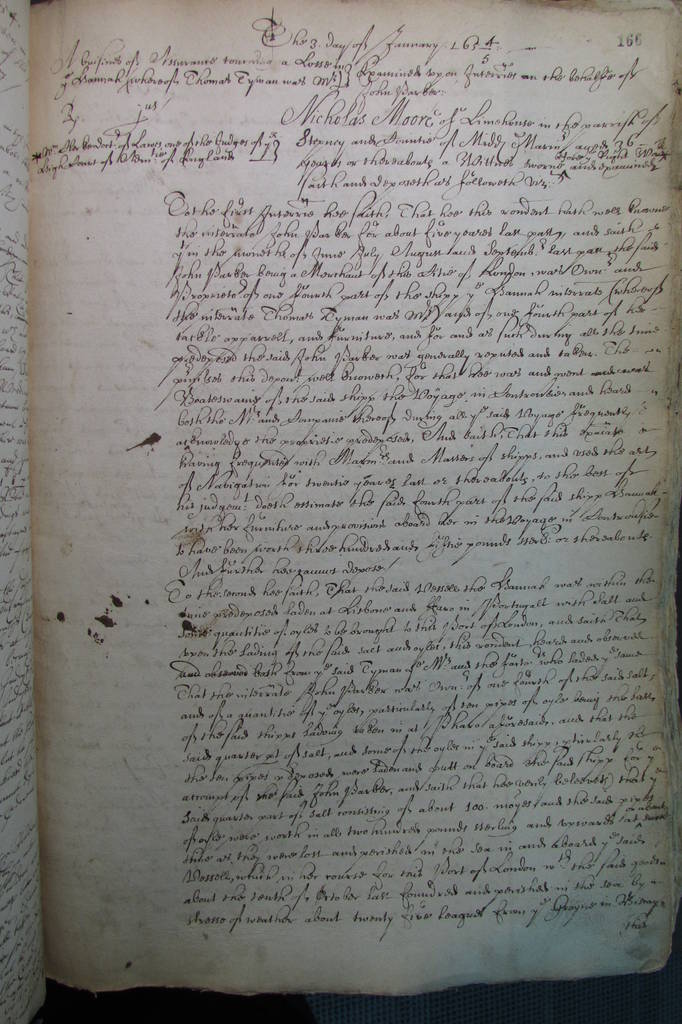 166
The 3. day of January 1654/5
A busines of Assurance touching a Losse in
ye Hannah whereof Thomas Tyman was Mr
Examined upon Interries on the behalfe of
John Barker.
Rp. jus
Nicholas Moore of Limehouse in the parrish of
Stepney and Countie of Middx Marinr aged 36
yeares or thereabouts a Wittnes sworne and examined
saith and deposeth as followeth vizt
before ye Right Worll
Dr of Lawes one of the Judges of ye
high Court of Admltie of England
To the first Interrie hee saith, That hee this rendent hath well knowne
the interrate John Barker for about five yeares last past, and saith
yt in the moneth of June July August and Septembr last past the said
John Barker being a Merchant of this Citie of London, was Ownr and
Proprietor of one fourth part of the shipp ye Hannah interrate (whereof
the interrate Thomas Tyman was Mr) and of one fourth part of her
tackle apparrell, and furniture, and for and as such during all the time
predeposed the said John Barker was generally reputed and taken. The
pmisses this depont well knoweth, for that hee was and went
Boateswaine of the said shipp the Voyage in Controversie and heard
both the Mr and Companie thereof during all ye said Voyage frequently
acknowledge the proprietie predeposed, And saith, That this rendent
having frequented with Marinrs and Masters of shipps, and used the art
of Navigation for twentie yeares last or thereabouts, to the best of
his judgemt doeth estimate the said fourth part of the said shipp Hannah
with her furniture and provisions aboard her in the Voyage in Controversie
to have been worth three hundred and fiftie pounds sterl: or thereabouts
And further hee cannot depose
To the second hee saith, That the said Vessell the Hannah was within the
time predeposed laden at Lisbone and Faro in Portugall with salt and
some quantitie of oyles to be brought to this Port of London, and saith That
upon the lading of the said salt and oyles, this rendent heard and observed
and observed both from ye said Tyman ye Mr and the factor who laded ye same
That the interrate John Barker was Ownr of one fourth of the said salt,
and of a quantitie of ye oyles, particularly of ten pipes of oyle being the
of the said shipps lading taken in at Pharo aforesaid, and that the
said quarter pt of salt, and some of the oyles in ye said shipp, pticularly the
the ten pipes pdeposed were laden and putt on board the said shipp for ye
accompt of the said John Barker, and saith that hee verily beleeveth that ye
said quarter part of salt consisting of about 100. moyes and the said pipes
of oyle were worth in all two hundred pounds sterling and upwards
time as they were lost and perished in the sea in and aboard ye said
Vessell, which in her course for this Port of London wth the said goods
about the tenth of October last foundred and perished in the sea by
stresse of weather about twenty five leagues from ye Groyne in Biscay
this